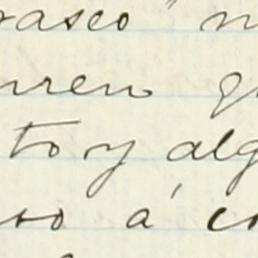 rasco" n
nren q
to y alg
so á co